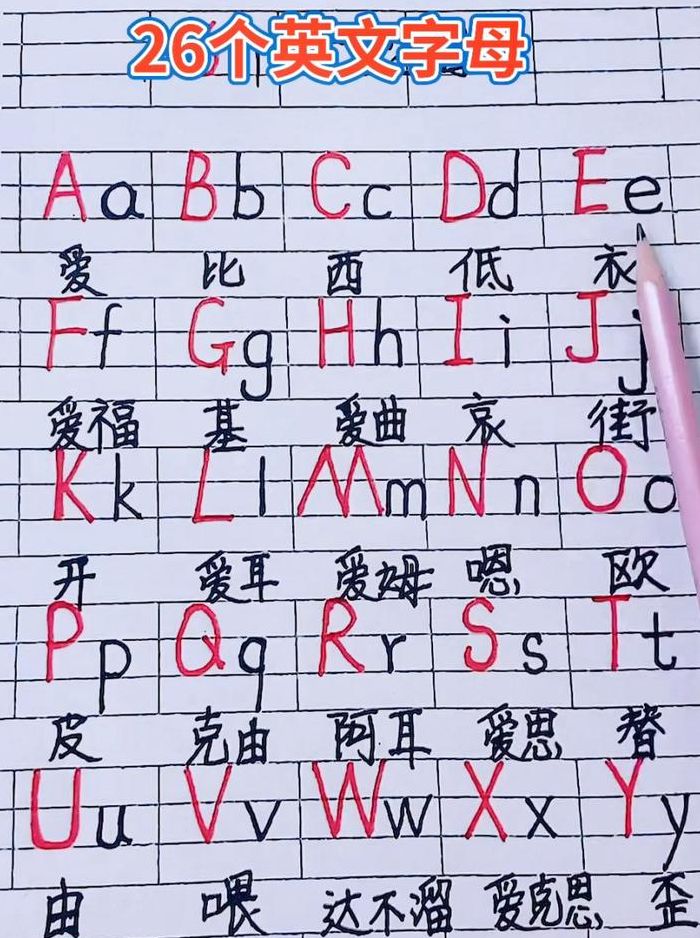 26个英文字母
Aa Bb Cc Dd Ee
爱 比 西 低 衣
Ff Gg Hh Ii Jj
爱福 基 爱曲 哀 街
Kk Ll Mm Nn Oo
开 爱耳 爱姆 嗯 欧
Pp Qq Rr Ss Tt
皮 克由 阿耳 爱思 替
Uu Vv Ww Xx Yy
由 喂 达不溜 爱克思 歪